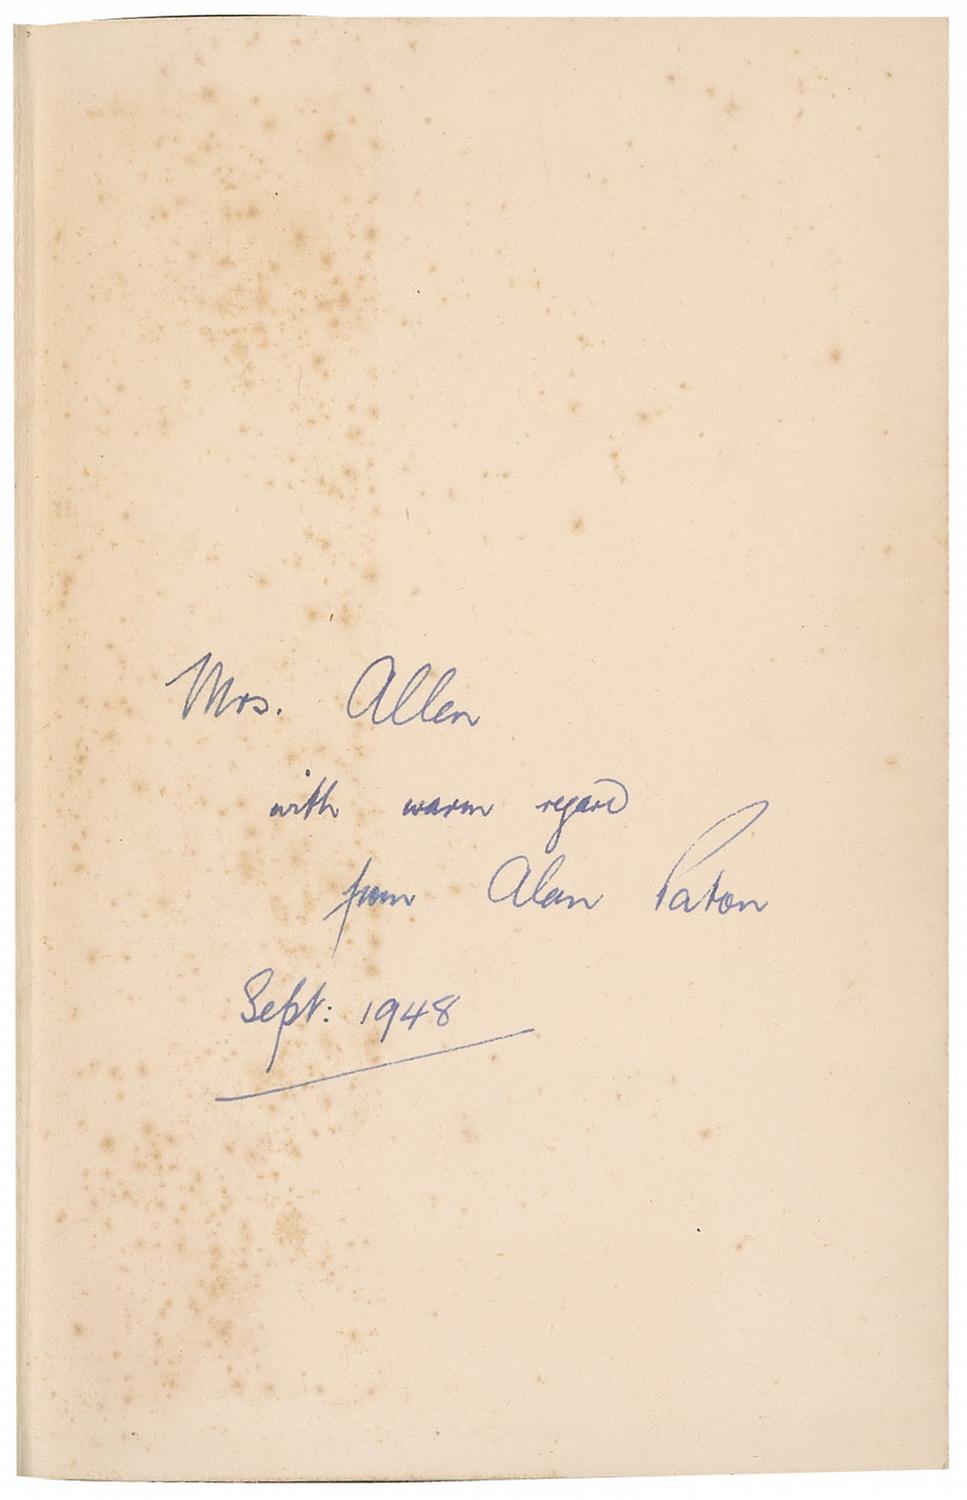 Mrs. Allen
with warm regard
from Alan Paton
Sept: 1948